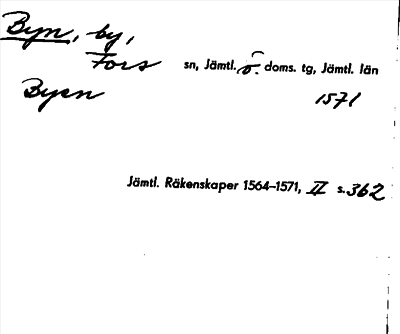 Byn, by,
Fors sn, Jämtl. ö. doms. tg, Jämtl. län
Byen 1571
Jämtl. Räkenskaper 1564–1571, II s. 362